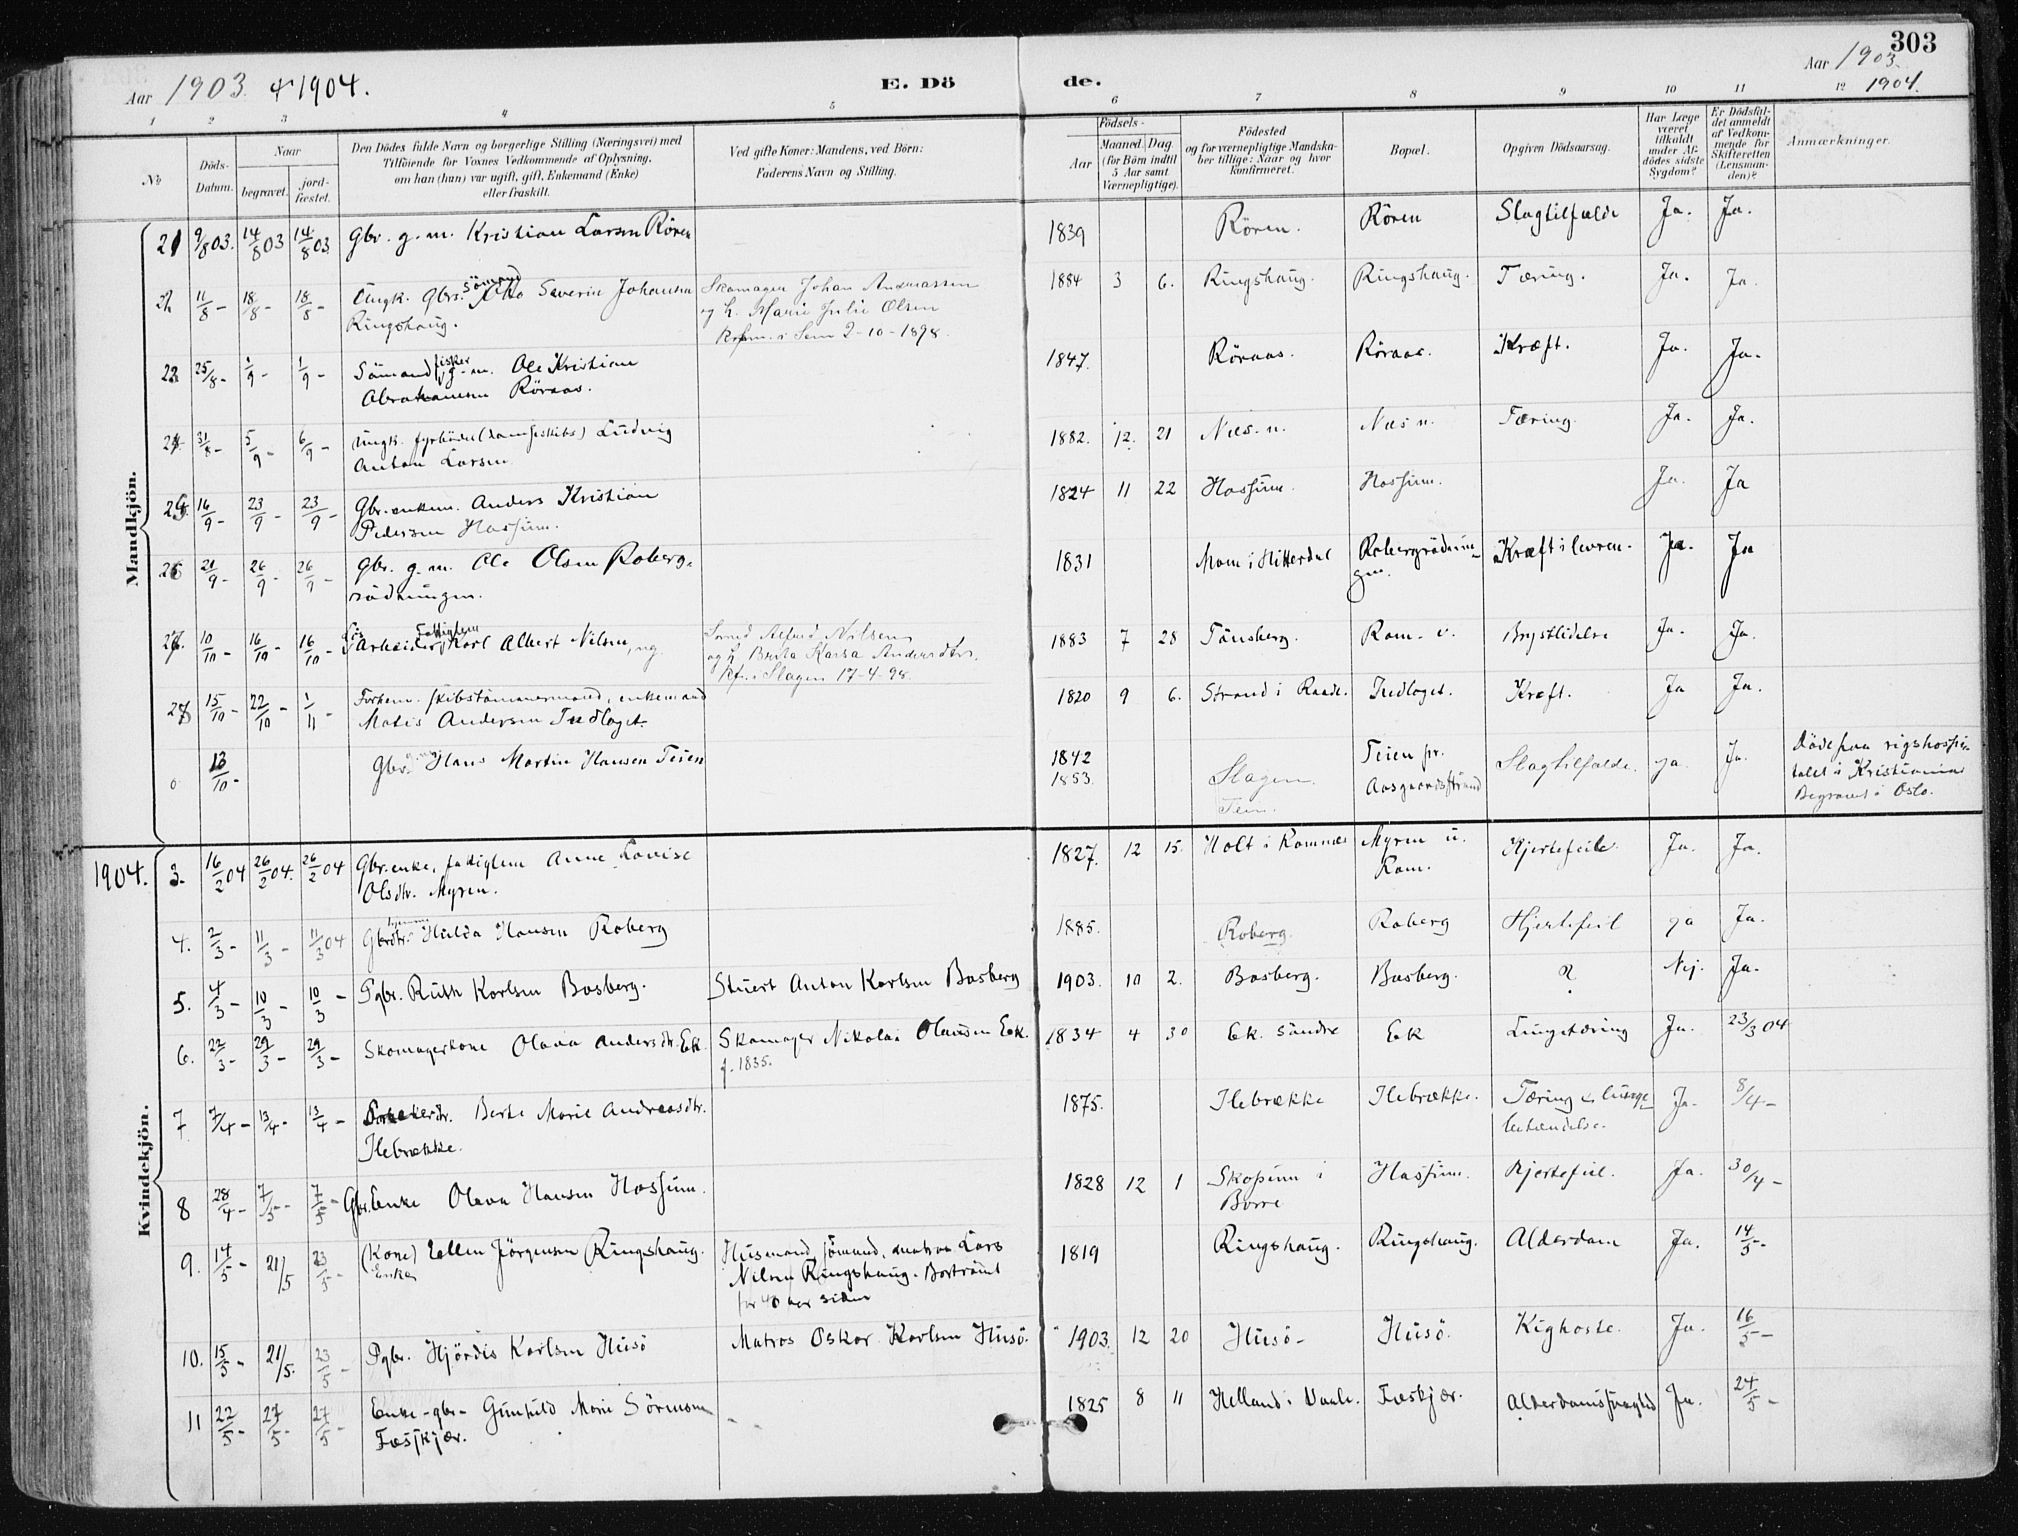 303
Aar 1903. & 1904.
E. Dö
de.
Aar 1903.
1904.
1 2 3 4 5 6 7 8 9 10 11 12
No
Döds-
Datum.
Naar
begravet.
jord-
fæstet.
Den Dödes fulde Navn og borgerlige Stilling (Næringsvei) med
Tilföiende for Voxnes Vedkommende af Oplysning,
om han (hun) var ugift, gift, Enkemand (Enke)
eller fraskilt.
Ved gifte Koner: Mandens, ved Börn:
Faderens Navn og Stilling.
Födsels-
Aar
Maaned. Dag.
(for Börn indtil
5 Aar samt
Værnepligtige).
Födested
og for værnepligtige Mandska-
ber tillige: Naar og hvor
konfirmeret.
Bopæl.
Opgiven Dödsaarsag.
Har Læge
været
tilkaldt
under Af-
dödes sidste
Sygdom?
Er Dödsfal-
det anmeldt
af Vedkom-
mende for
Skifteretten
(Lensman-
den)?
Anmærkninger.
Mandkjön.
21 9/8 03. 14/8 03 14/8 03. Gbr. g. m. Kristian Larsen Rören 1839 Rören. Rören Slagtilfælde Ja. Ja.
22. 11/8 - 18/8 - 18/8 - Ungk. Gbrs. sömand Otto Severin Johansen Skomager Johan Andreassen 1884 3 6. Ringshaug. Ringshaug. Tæring. Ja. Ja.
Ringshaug. og h. Marie Julie Olsen
Kfm. i Sem 2-10-1898.
23. 25/8 - 1/9 - 1/9 - Sömand fisker g. m. Ole Kristian 1847. Röraas. Röraas. Kræft. Ja. Ja.
Abrahamsen Röraas.
24. 31/8 - 5/9 - 6/9 - Ungk. fyrböder (dampskibs) Ludvig 1882. 12. 21 Næs. n. Næs n. Tæring. Ja. Ja.
Anton Larsen.
25. 16/9 - 23/9 - 23/9 - Gbr. enkem. Anders Kristian 1824 11 22 Hassum. Hassum. Ja. Ja
Pedersen Hassum.
26 21/9 - 26/9 - 26/9 - Gbr. g. m. Ole Olsen Roberg- 1831 Moen i Hitterdal Robergrödnin- Kræft i leveren. Ja. Ja
rödningen. gen.
27. 10/10 - 16/10 - 16/10 - Arbeider, Fattiglem Karl Albert Nilsen, ug. Smed Alfred Nilsen 1883 7 28 Tönsberg. Ram. v. Brystlidelse Ja. Ja.
og h. Berta Karsa Andersdtr.
Kf. i Slagen 17-4-98.
28 15/10 - 22/10 - 1/11 - Forhem. skibstömmermand, enkemand 1820 9 6. Strand i Raade. Indlaget. Kræft. Ja Ja.
Matis Andersen Indlaget.
o. 13/10 - Gbr. Hans Martin Hansen Teien 1842 Slagen Teien pr. Slagtilfælde. ja Ja. döde paa rigshospi-
1853. Teien. Aasgaardsstrand talet i Kristiania
Begravet i Oslo.
1904.
Kvindekjön.
3. 16/2 04 26/2 04. 26/2 04 Gbr.enke, fattiglem Anne Lovise 1827. 12 15. Holt i Ramnæs Myren u. Hjertefeil. Ja. Ja.
Olsdtr. Myren. Ram.
4. 2/3 - 11/3 - 11/3 04 Gbrdtr. Hulda Hansen Roberg 1885. Roberg. Roberg Hjertefeil ja Ja.
5. 4/3 - 10/3 - 10/3 - Pgbr. Ruth Karlsen Basberg. Stuert Anton Karlsen Basberg 1903. 10 2. Basberg. Basberg. ? Nej. Ja.
6. 22/3 - 29/3 - 29/3 - Skomagerkone Olava Andersdtr. Eek. Skomager Nikolai Olausen Eek. 1834 4 30 Ek. söndre Ek Lungetæring Ja. 23/3 04
f. 1835.
7 7/4 - 13/4 - 13/4 - Berte Marie Andreasdtr. 1875. Ilebrække Ilebrække. Tæring & lunge- Ja. 8/4 -
Ilebrække. betændelse.
8 28/4 - 7/5 - 7/5 - Gbr. Enke Olava Hansen Hassum. 1828 12 1 Skopum i Hassum. Hjertefeil. Ja. 30/4 -
Borre
9. 14/5 - 21/5 23/5 - (Kone) Ellen Jörgensen Ringshaug. Husmand, sömand, matros Lars 1819 Ringshaug. Ringshaug. Alderdom Ja. 14/5 -
Enke Nilsen Ringshaug. Bortrömt
for 40 aar siden
10. 15/5 - 21/5. 23/5 Pgbr. Hjördis Karlsen Husö Matros Oskar Karlsen Husö. 1903. 12 20 Husö - Husö. Kighoste. Ja. 16/5 -
11 22/5 - 27/5 - 27/5 - Enke - gbr - Gunhild Marie Sörensen 1825 8 11 Helland i Vaale. Fæskjær. Alderdomssvaghed Ja. 24/5 -
Fæskjær.